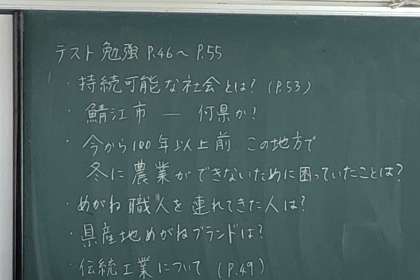 テスト勉強 P.46~P.55
・持続可能な社会とは? (P.53)
・鯖江市 ― 何県か!
・今から100年以上前 この地方で
冬に農業ができないために困っていたことは?
・めがね職人を連れてきた人は?
・県産地めがねブランドは?
・伝統工業について (P.49)